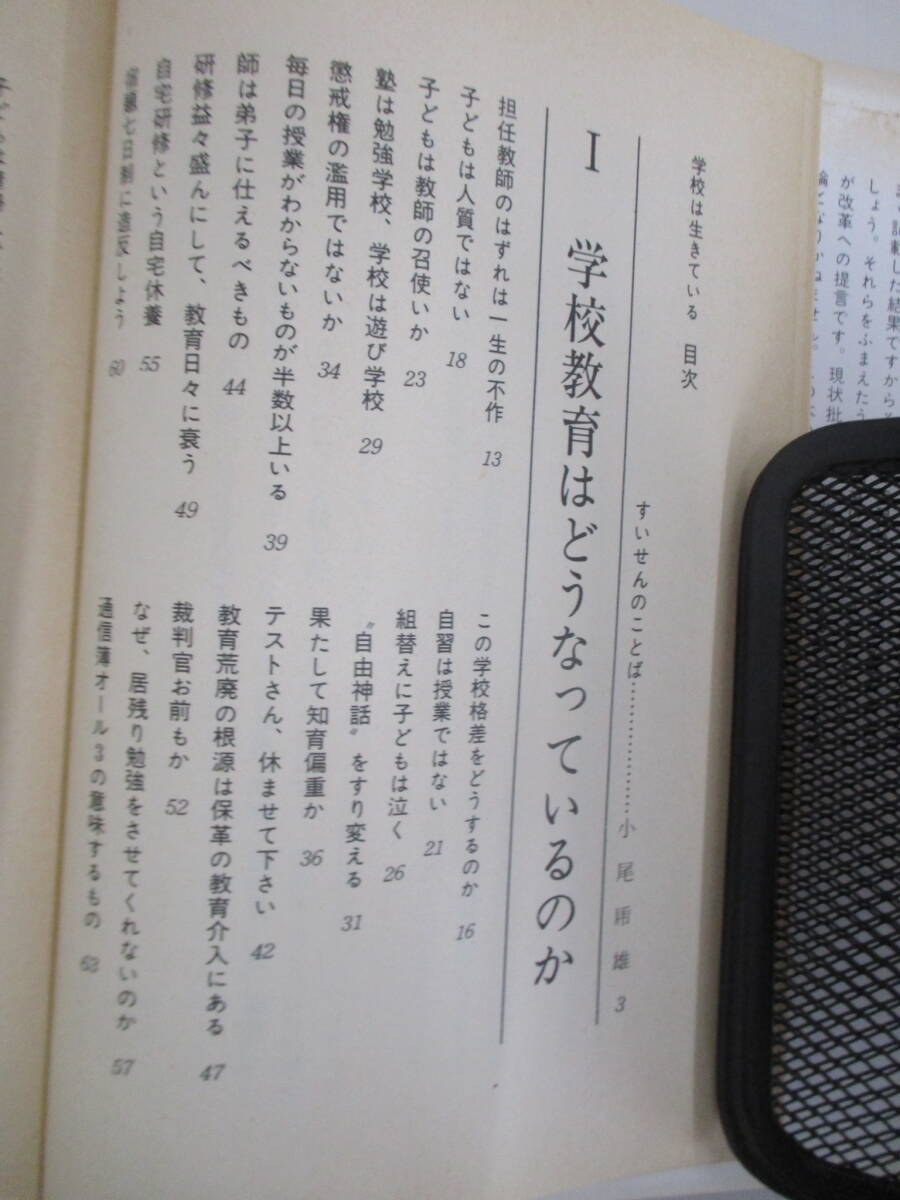 学校は生きている 目次
すいせんのことば……………小尾乕雄 3
I 学校教育はどうなっているのか
担任教師のはずれは一生の不作 13
この学校格差をどうするのか 16
子どもは人質ではない 18
自習は授業ではない 21
子どもは教師の召使いか 23
組替えに子どもは泣く 26
塾は勉強学校、学校は遊び学校 29
“自由神話”をすり変える 31
懲戒権の濫用ではないか 34
果たして知育偏重か 36
毎日の授業がわからないものが半数以上いる 39
テストさん、休ませて下さい 42
師は弟子に仕えるべきもの 44
教育荒廃の根源は保革の教育介入にある 47
研修益々盛んにして、教育日々に衰う 49
裁判官お前もか 52
自宅研修という自宅休養 55
なぜ、居残り勉強をさせてくれないのか 57
七日制に造反しよう 60
通信簿オール3の意味するもの 63
記載した結果ですから
しょう。それらをふまえたう
が改革への提言です。現状批